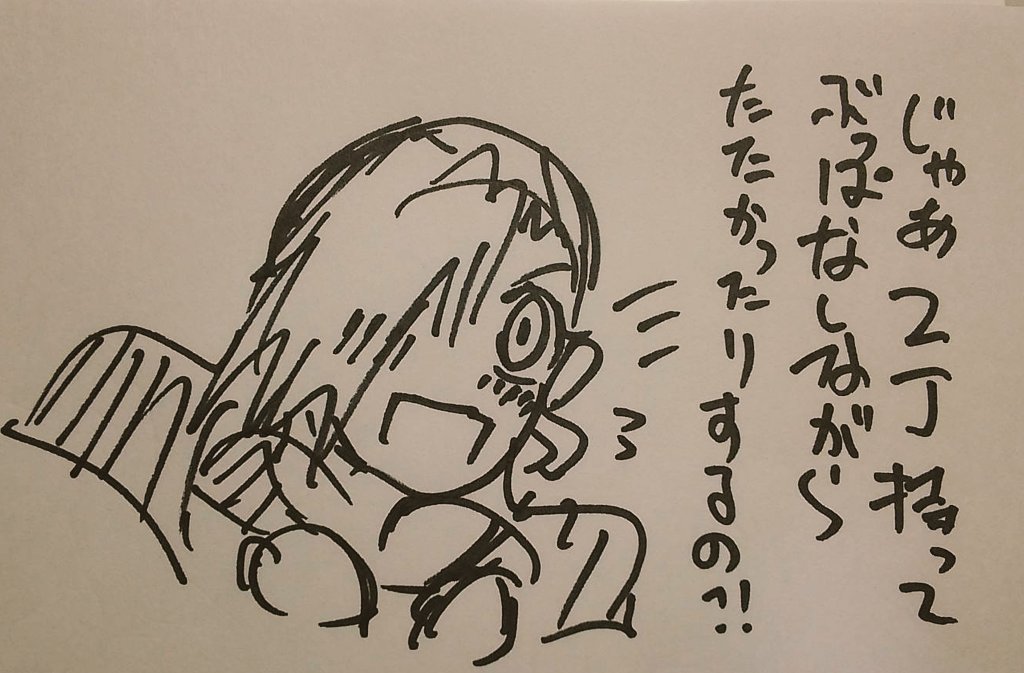 じゃあ2丁持って
ぶっぱなしながら
たたかったりするの?!